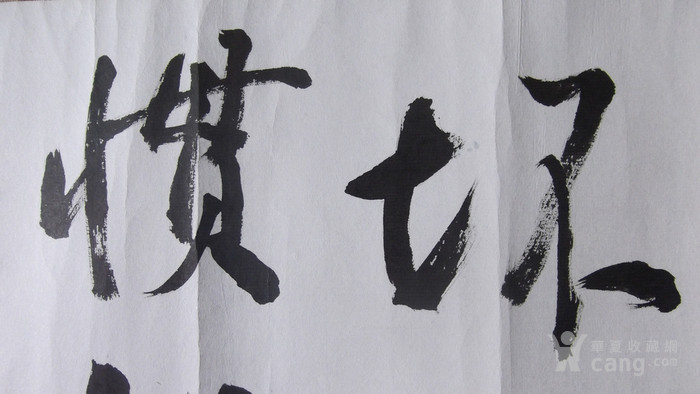 坏
惯
華夏收藏網
cang.com